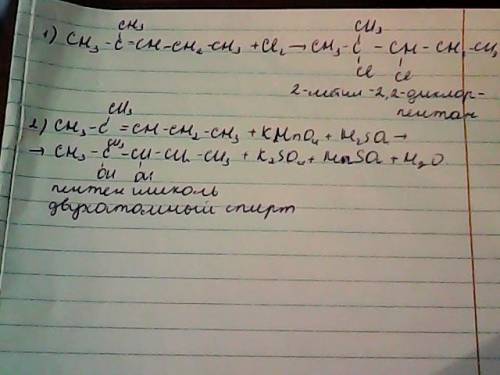 CH₃
CH₃
1) CH₃-C=CH-CH₂-CH₃ + Cl₂ → CH₃-C - CH - CH₂-CH₃
Cl Cl
2-метил-2,2-дихлор-
пентан
CH₃
2) CH₃-C=CH-CH₂-CH₃ + KMnO₄ + H₂SO₄ →
CH₃
→ CH₃-C-CH-CH₂-CH₃ + K₂SO₄ + MnSO₄ + H₂O
OH OH
пентен гликоль
двухатомный спирт